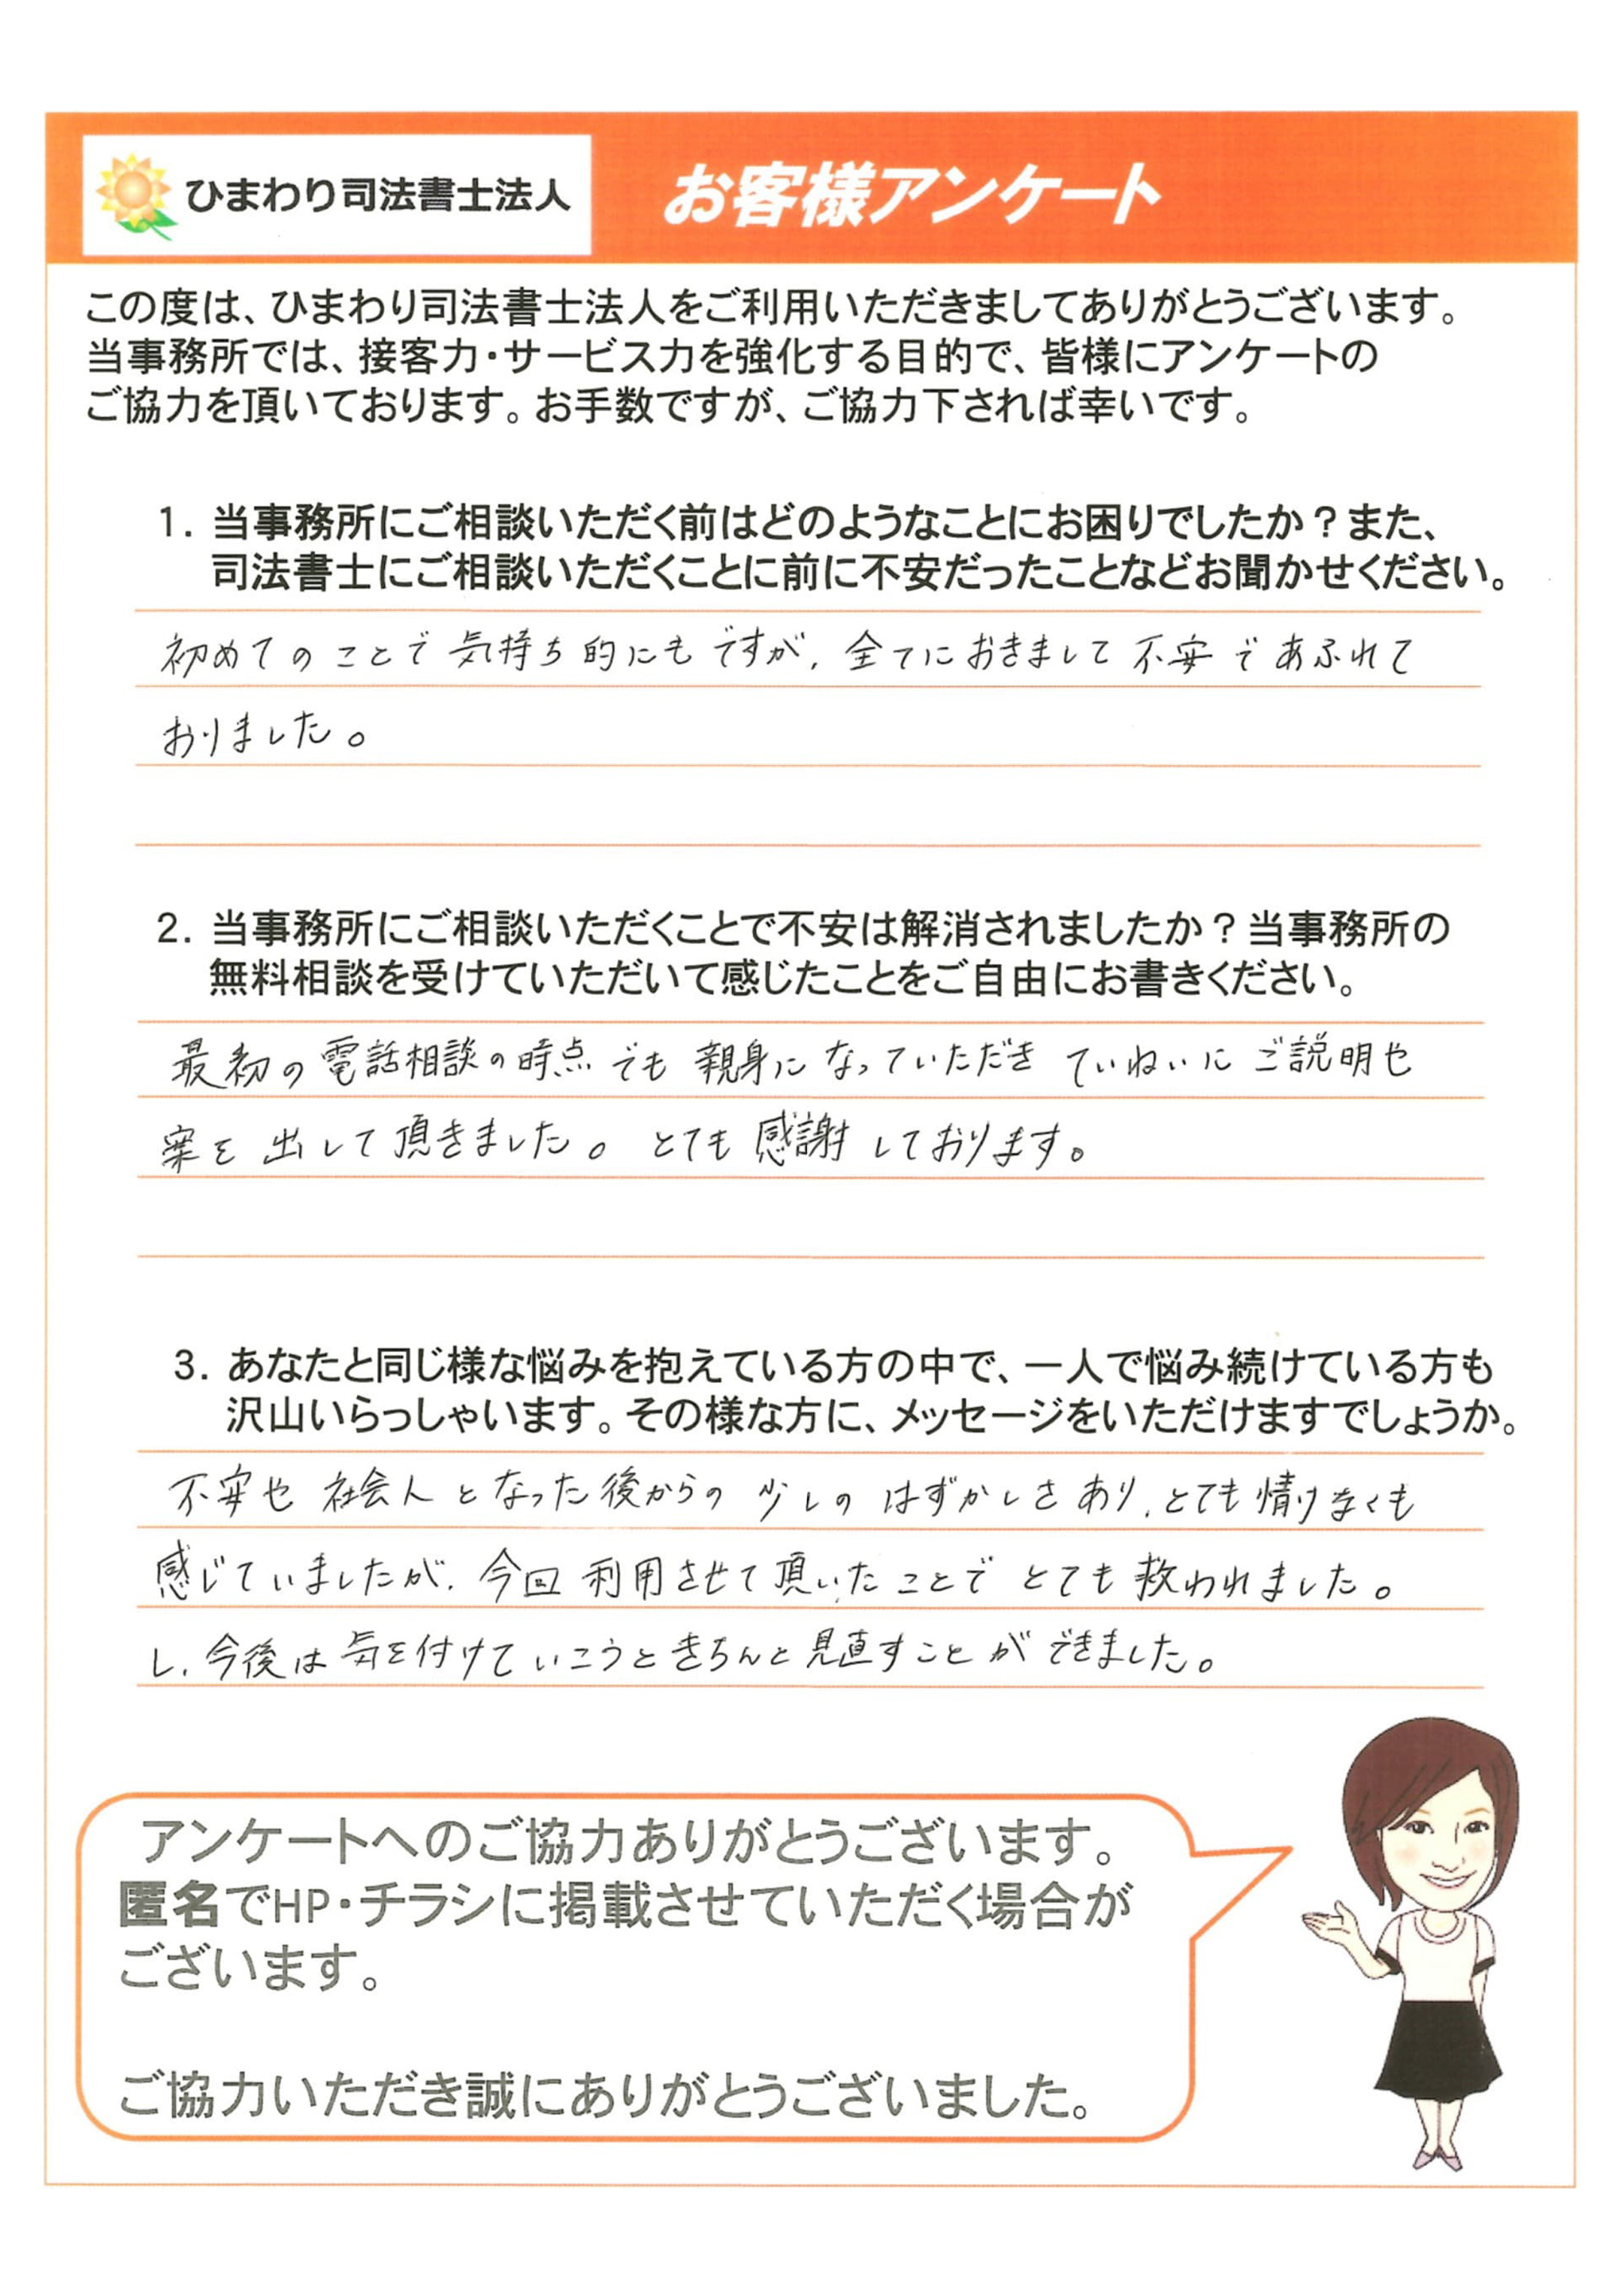 ひまわり司法書士法人
お客様アンケート
この度は、ひまわり司法書士法人をご利用いただきましてありがとうございます。
当事務所では、接客力・サービス力を強化する目的で、皆様にアンケートの
ご協力を頂いております。お手数ですが、ご協力下されば幸いです。
1. 当事務所にご相談いただく前はどのようなことにお困りでしたか？また、
司法書士にご相談いただくことに前に不安だったことなどお聞かせください。
初めてのことで気持ち的にもですが、全てにおきまして不安であふれて
おりました。
2. 当事務所にご相談いただくことで不安は解消されましたか？当事務所の
無料相談を受けていただいて感じたことをご自由にお書きください。
最初の電話相談の時点でも親身になっていただきていねいにご説明や
案を出して頂きました。とても感謝しております。
3. あなたと同じ様な悩みを抱えている方の中で、一人で悩み続けている方も
沢山いらっしゃいます。その様な方に、メッセージをいただけますでしょうか。
不安や社会人となった後からの少しのはずかしさあり、とても情けなくも
感じていましたが、今回利用させて頂いたことでとても救われました。
し、今後は気を付けていこうときちんと見直すことができました。
アンケートへのご協力ありがとうございます。
匿名でHP・チラシに掲載させていただく場合が
ございます。
ご協力いただき誠にありがとうございました。